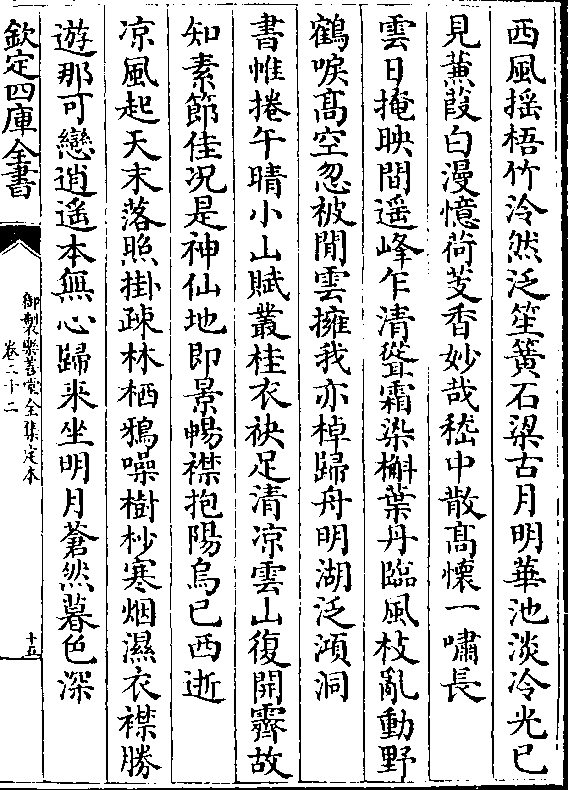 西風揺梧竹泠然泛笙簧石梁古月明華池淡冷光已
見蒹葭白漫憶荷芰香妙哉嵇中散髙懷一嘯長
雲日掩映間遥峰乍清聳霜染槲葉丹臨風枝亂動野
鶴唳髙空忽被閒雲擁我亦棹歸舟明湖泛澒洞
書帷捲午晴小山賦叢桂衣袂足清凉雲山復開霽故
知素節佳况是神仙地即景暢襟抱陽烏已西逝
凉風起天末落照掛疎林栖鴉噪樹杪寒烟濕衣襟勝
遊那可戀逍遥本無心歸来坐明月蒼然暮色深
欽定四庫全書
御製樂善堂全集定本
卷二十二
十五